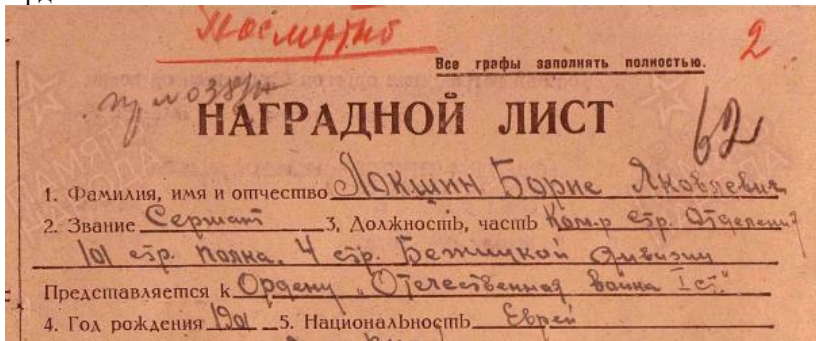 Посмертно
Все графы заполнять полностью. 2
пр № 038/н
НАГРАДНОЙ ЛИСТ 62
1. Фамилия, имя и отчество Локшин Борис Яковлевич
2. Звание Сержант 3, Должность, часть Ком-р стр. Отделения
101 стр. полка. 4 стр. Бежицкой дивизии
Представляется к Ордену „Отечественная война I ст."
4. Год рождения 1901 5. Национальность Еврей